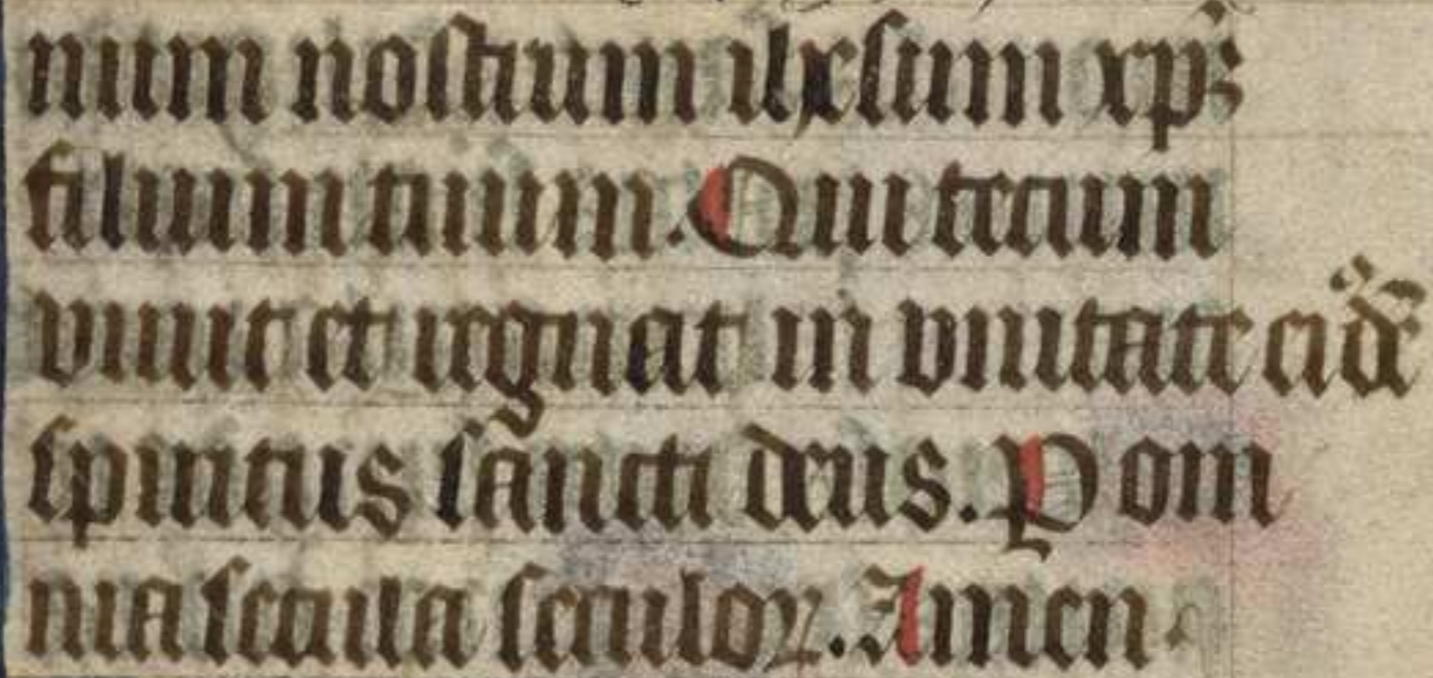 num nostrum ihesum xpm
filium tuum. Qui tecum
viuit et regnat in vnitate eiusdem
spiritus sancti deus. Per om
nia secula seculoꝝ. Amen